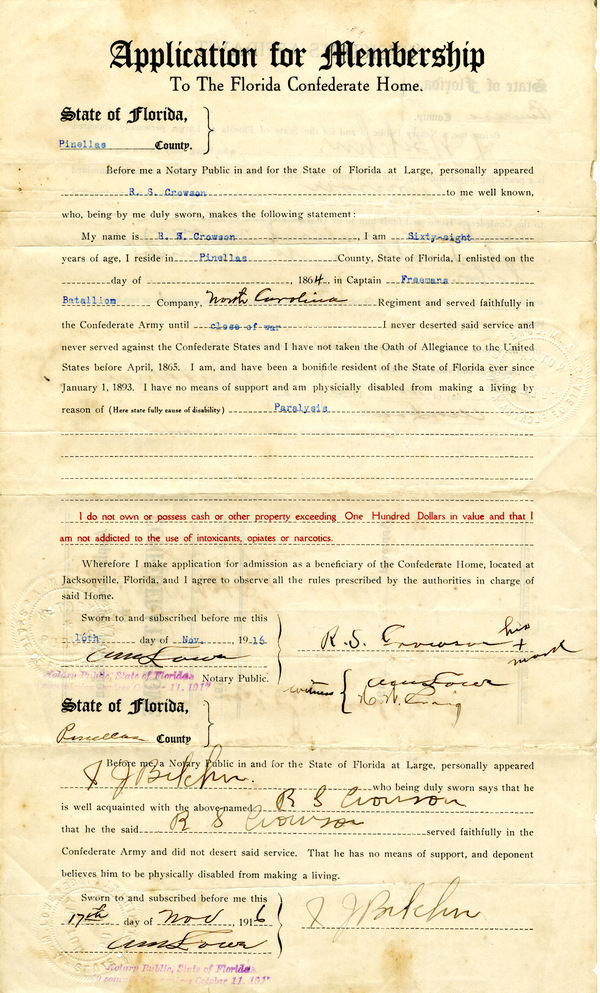 Application for Membership
To The Florida Confederate Home.
State of Florida,
Pinellas County.
Before me a Notary Public in and for the State of Florida at Large, personally appeared
R. S. Crowson to me well known,
who, being by me duly sworn, makes the following statement:
My name is R. H. Crowson, I am Sixty-eight
years of age, I reside in Pinellas County, State of Florida, I enlisted on the
day of , 1864, in Captain Freemans
Batallion Company, North Carolina Regiment and served faithfully in
the Confederate Army until close of war I never deserted said service and
never served against the Confederate States and I have not taken the Oath of Allegiance to the United
States before April, 1865. I am, and have been a bonifide resident of the State of Florida ever since
January 1, 1893. I have no means of support and am physicially disabled from making a living by
reason of (Here state fully cause of disability) Paralysis
I do not own or possess cash or other property exceeding One Hundred Dollars in value and that I
am not addicted to the use of intoxicants, opiates or narcotics.
Wherefore I make application for admission as a beneficiary of the Confederate Home, located at
Jacksonville, Florida, and I agree to observe all the rules prescribed by the authorities in charge of
said Home.
Sworn to and subscribed before me this
16th day of Nov., 1916
R. S. Crowson his
+
mark
Notary Public, State of Florida Notary Public.
11, 1917
witness
State of Florida,
Pinellas County
Before me a Notary Public in and for the State of Florida at Large, personally appeared
who being duly sworn says that he
is well acquainted with the above-named R S Crowson
that he the said R S Crowson served faithfully in the
Confederate Army and did not desert said service. That he has no means of support, and deponent
believes him to be physically disabled from making a living.
Sworn to and subscribed before me this
17th day of Nov, 1916
Notary Public, State of Florida
October 11, 1917